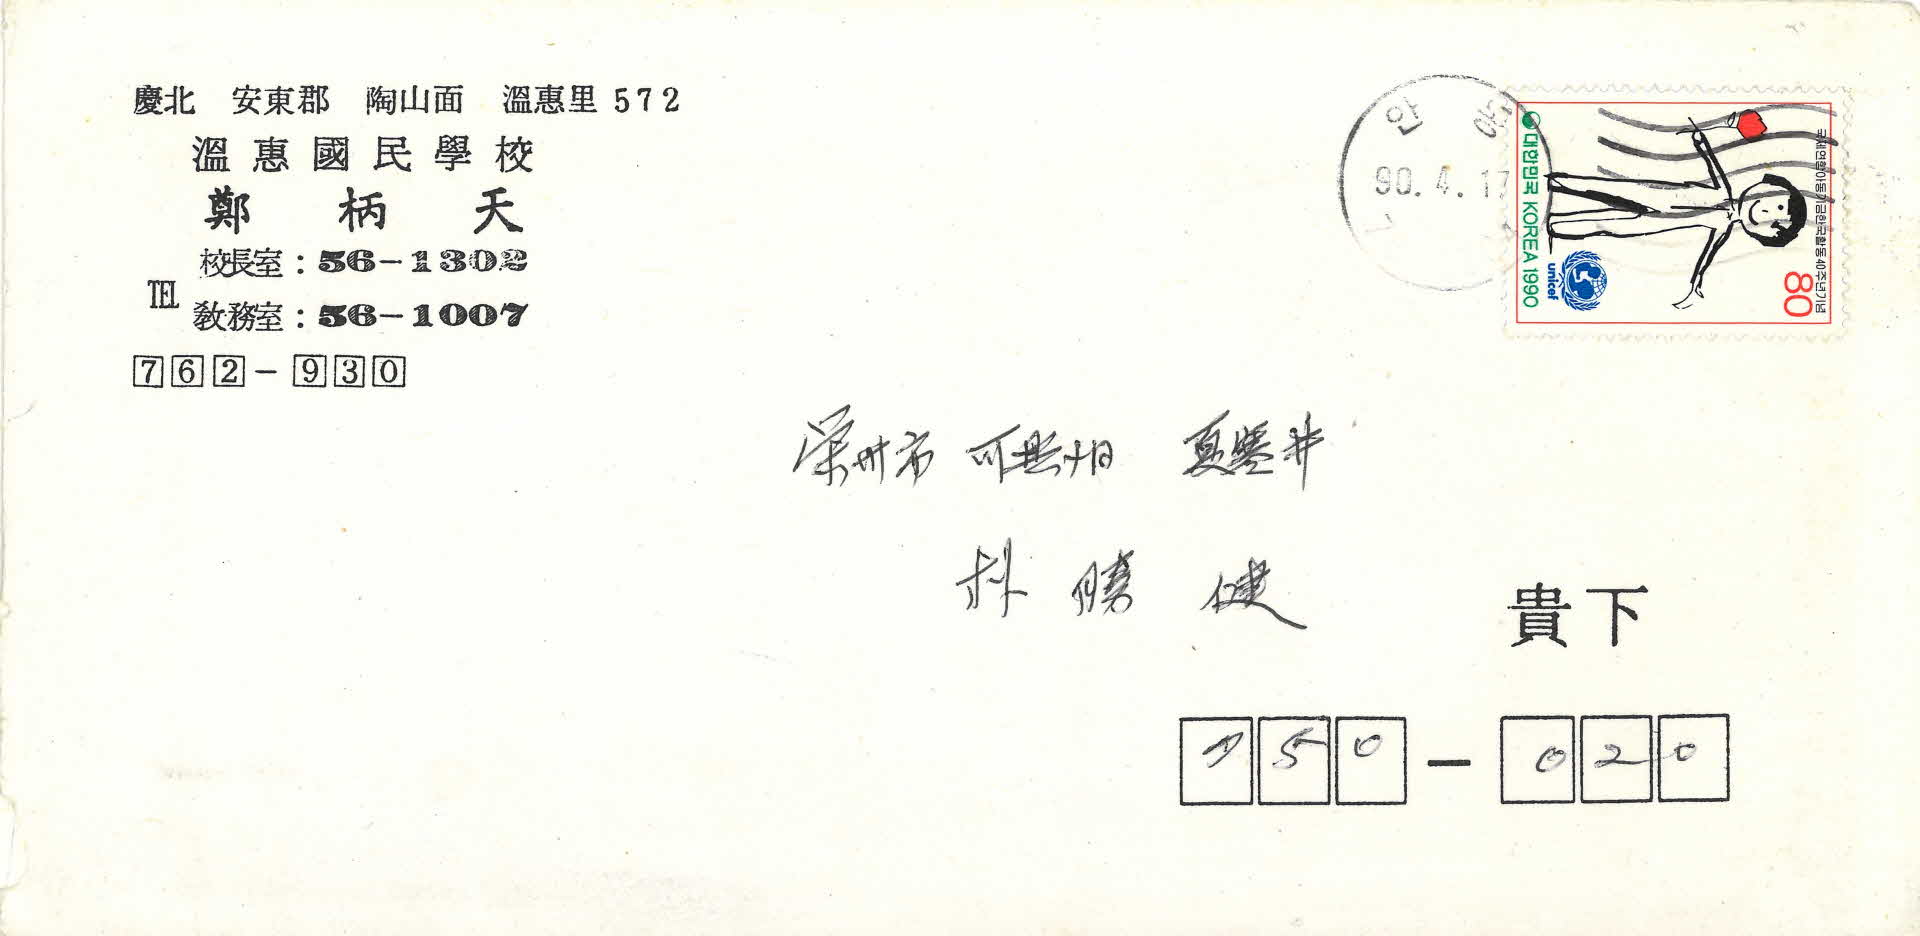 慶北 安東郡 陶山面 溫惠里 572
溫惠國民學校
鄭柄天
校長室 : 56-1302
TEL
敎務室 : 56-1007
762-930
안동
90.4.17
대한민국 KOREA 1990
unicef
국제연합아동기금한국활동40주년기념
80
榮州市 可興洞 夏寒井
朴 勝 健
貴下
750-020